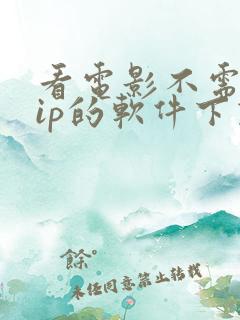 看電影不需
ip的軟件下
餘°
未经同意禁止转载